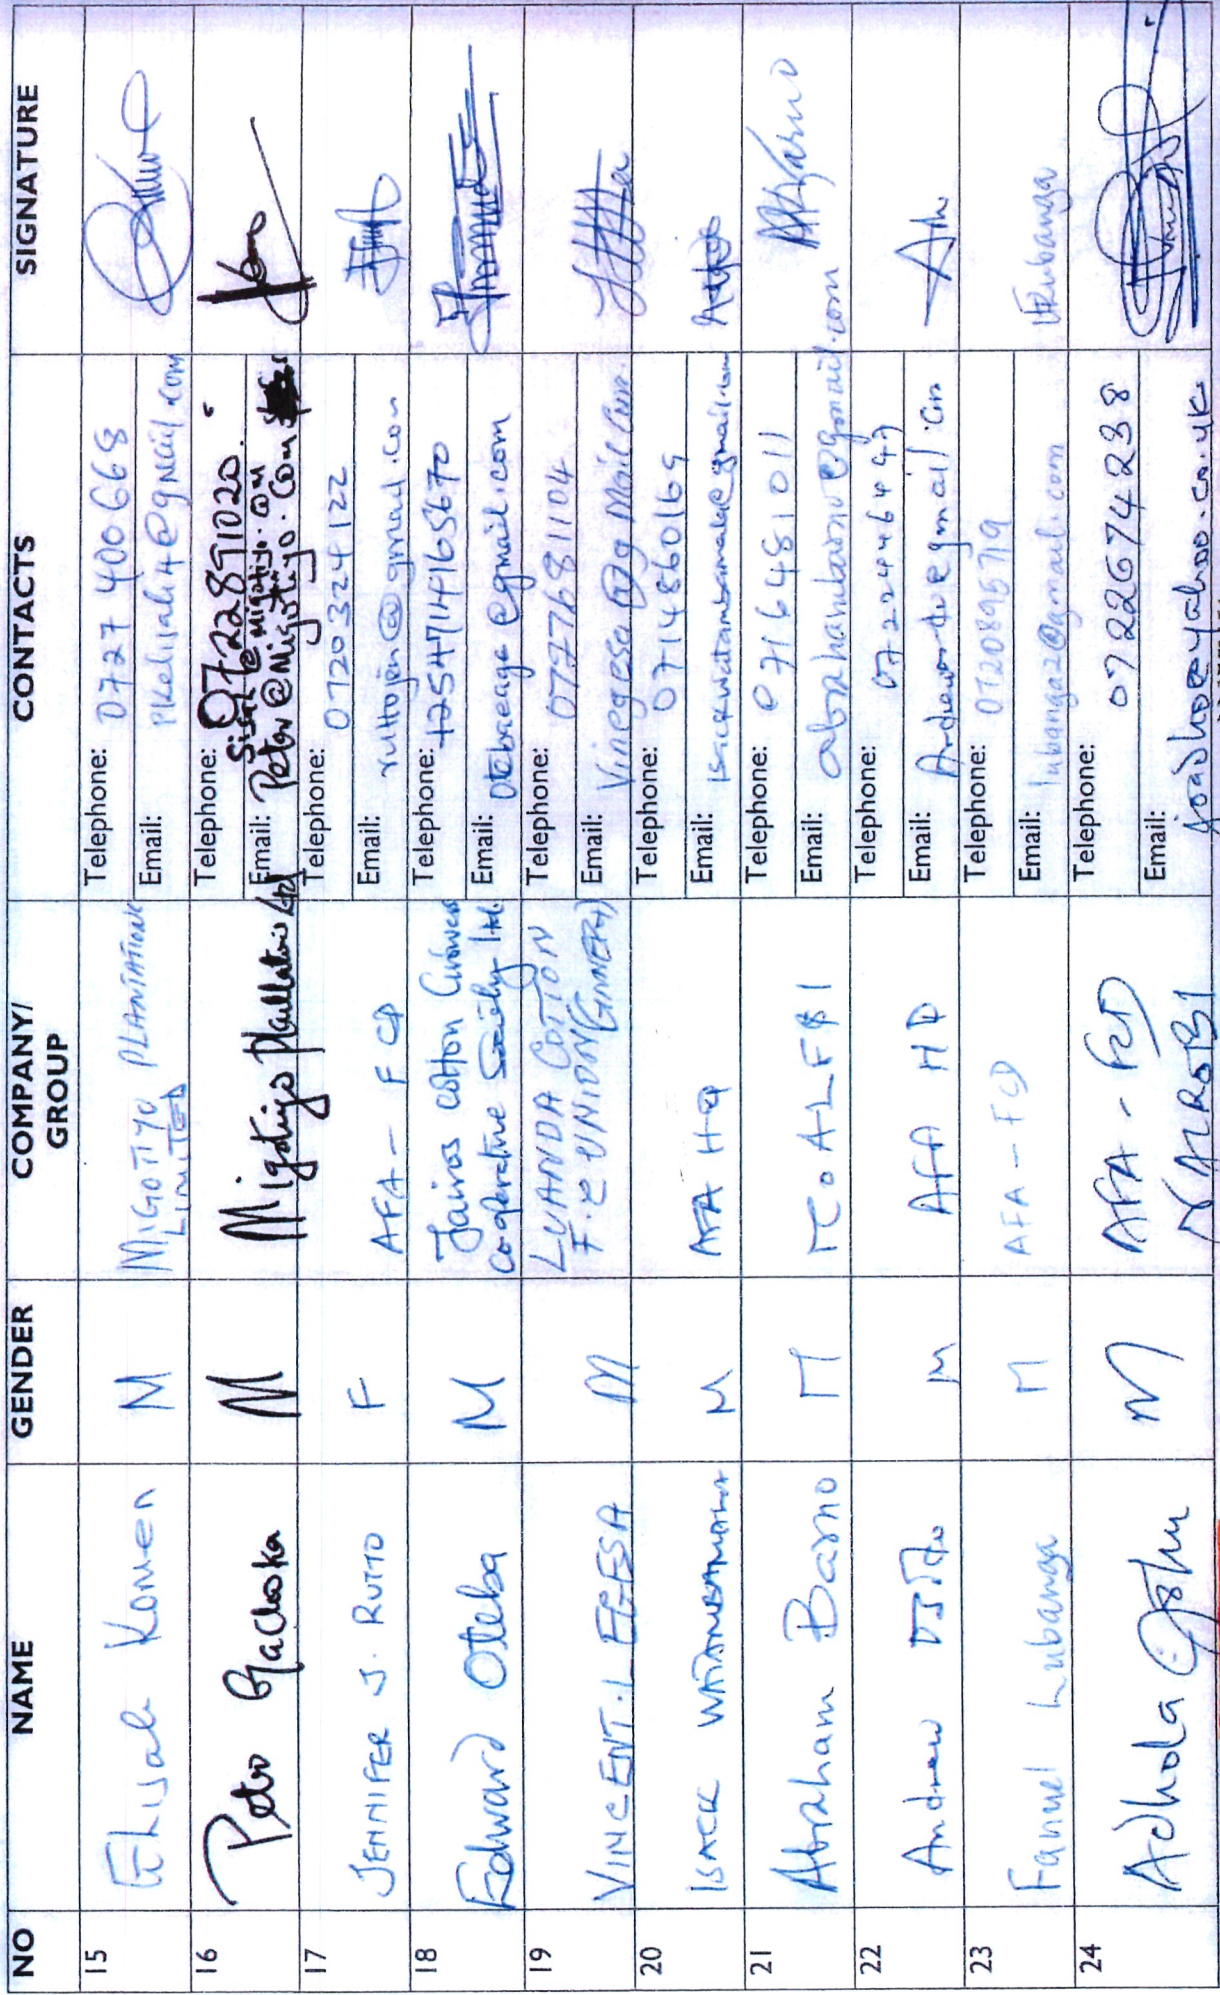 NO NAME GENDER COMPANY/ GROUP CONTACTS SIGNATURE
15 Elijah Komen M MIGOTIYO PLANTATIONS LIMITED Telephone: 0727 400668
Email: pkelijah4@gmail.com
16 Peter Gachoka M Migotiyo Plantations Ltd Telephone: 0722891020
Sisal@migotiyo.com
Email: Peter@Migotiyo.Com
17 JENNIFER J. RUTTO F AFA - FCD Telephone: 07203324122
Email: ruttojen@gmail.com
18 Edward Oteba M Jairos Cotton Growers Cooperative Society Ltd. Telephone: +254711465670
Email: @gmail.com
19 VINCENT. L EGESA M LUANDA COTTON F.C UNION (GINNERY) Telephone: 0727681104
Email: Vinegesa@gMail.Com
20 ISACK WATAMBAMALA M AFA HQ Telephone: 0714860169
Email: isackwatambamala@gmail.com
21 Abraham Barno M Telephone: 0716481011
Email: abrahambarno@gmail.com
22 Andrew M AFA Telephone:
Email: @gmail.com
23 Fanuel Lubanga M AFA - FCD Telephone: 0720895719
Email: lubanga2@gmail.com Lubanga
24 Adhola M AFA - FCD NAIROBI Telephone: 0722674238
Email: joadho@yahoo.co.uk